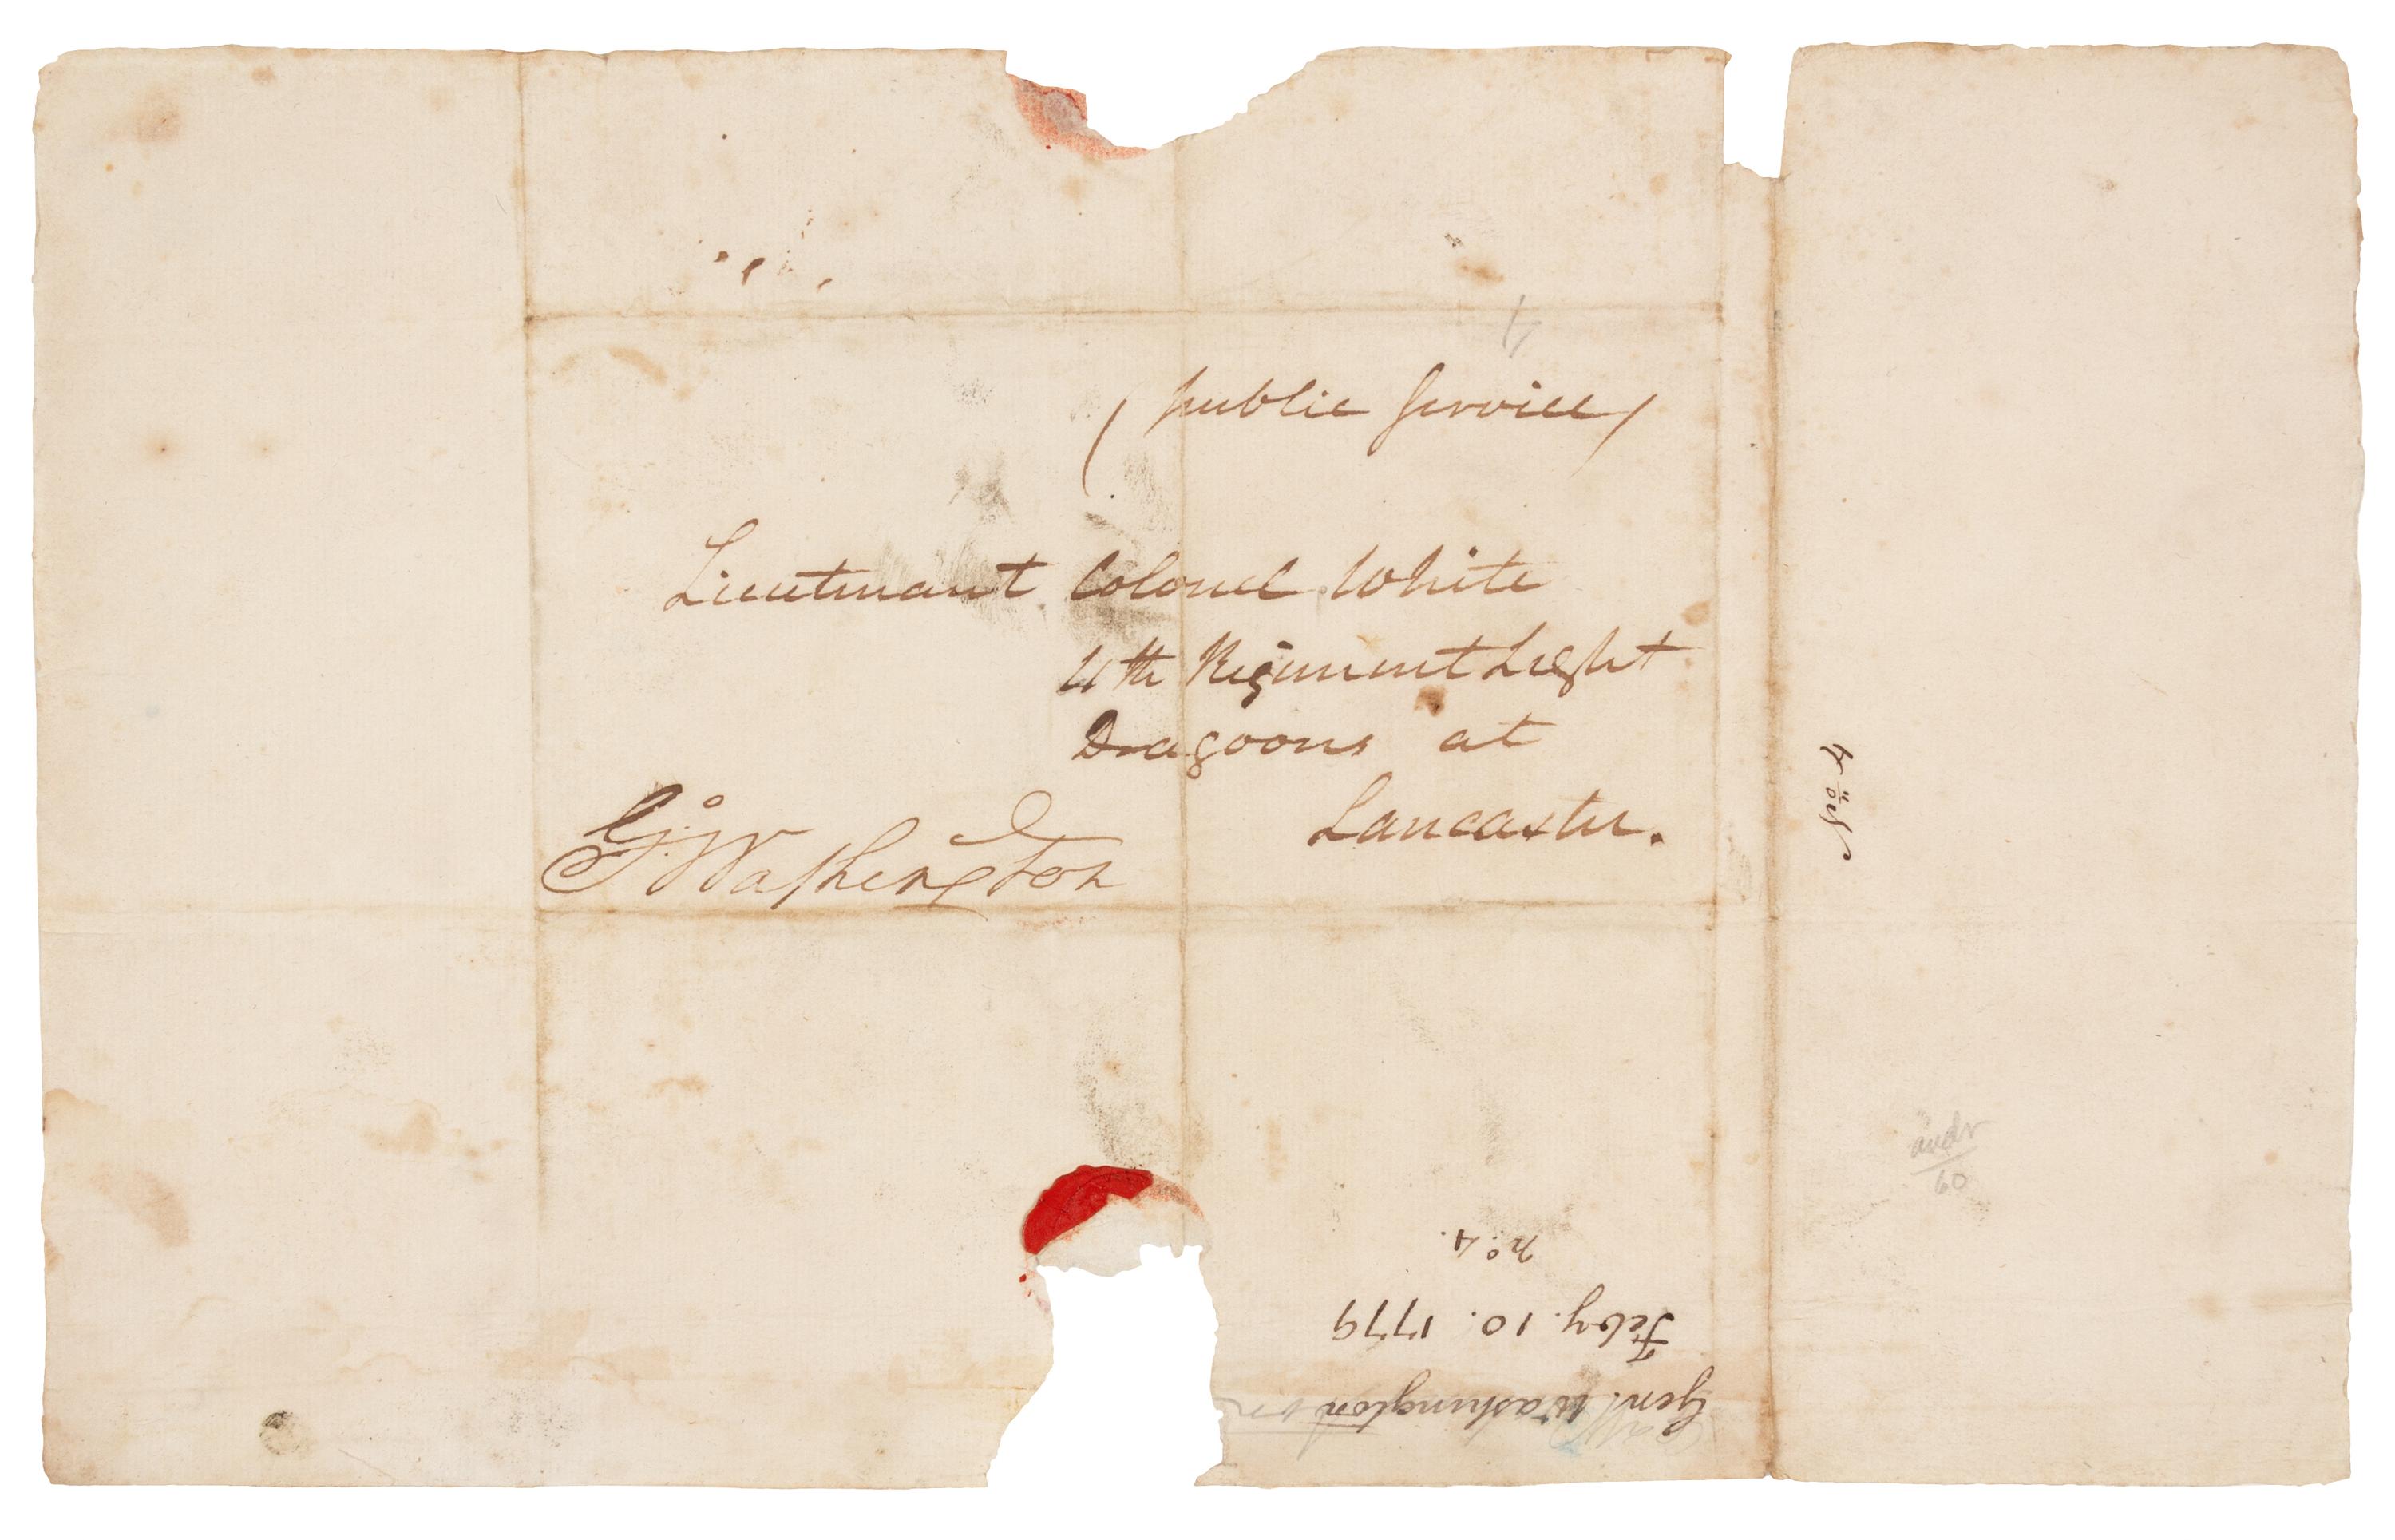 (public Service)
Lieutenant Colonel White
4th Regiment Light
Dragoons at
Lancaster.
Go: Washington
No 4
60
Genl. Washington
Feby. 10. 1779
No. 4.